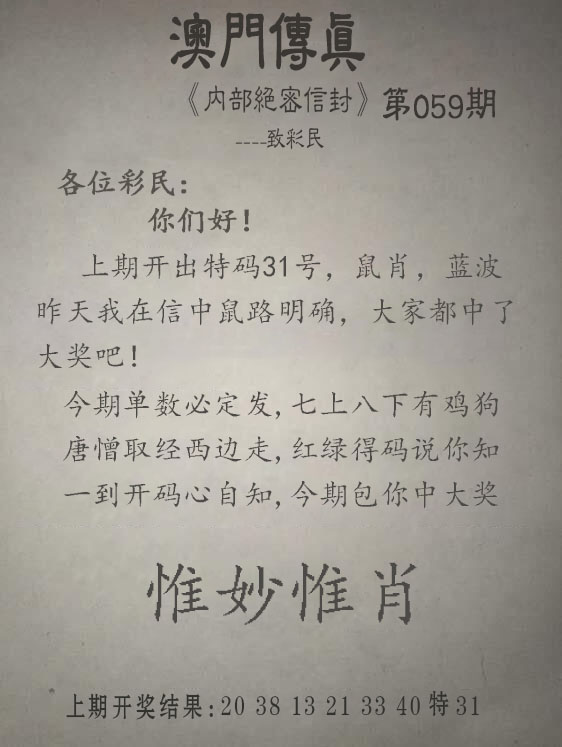 澳門傳眞
《内部絕密信封》第059期
----致彩民
各位彩民：
你们好！
上期开出特码31号，鼠肖，蓝波
昨天我在信中鼠路明确，大家都中了
大奖吧！
今期单数必定发,七上八下有鸡狗
唐憎取经西边走,红绿得码说你知
一到开码心自知,今期包你中大奖
惟妙惟肖
上期开奖结果:20 38 13 21 33 40 特31